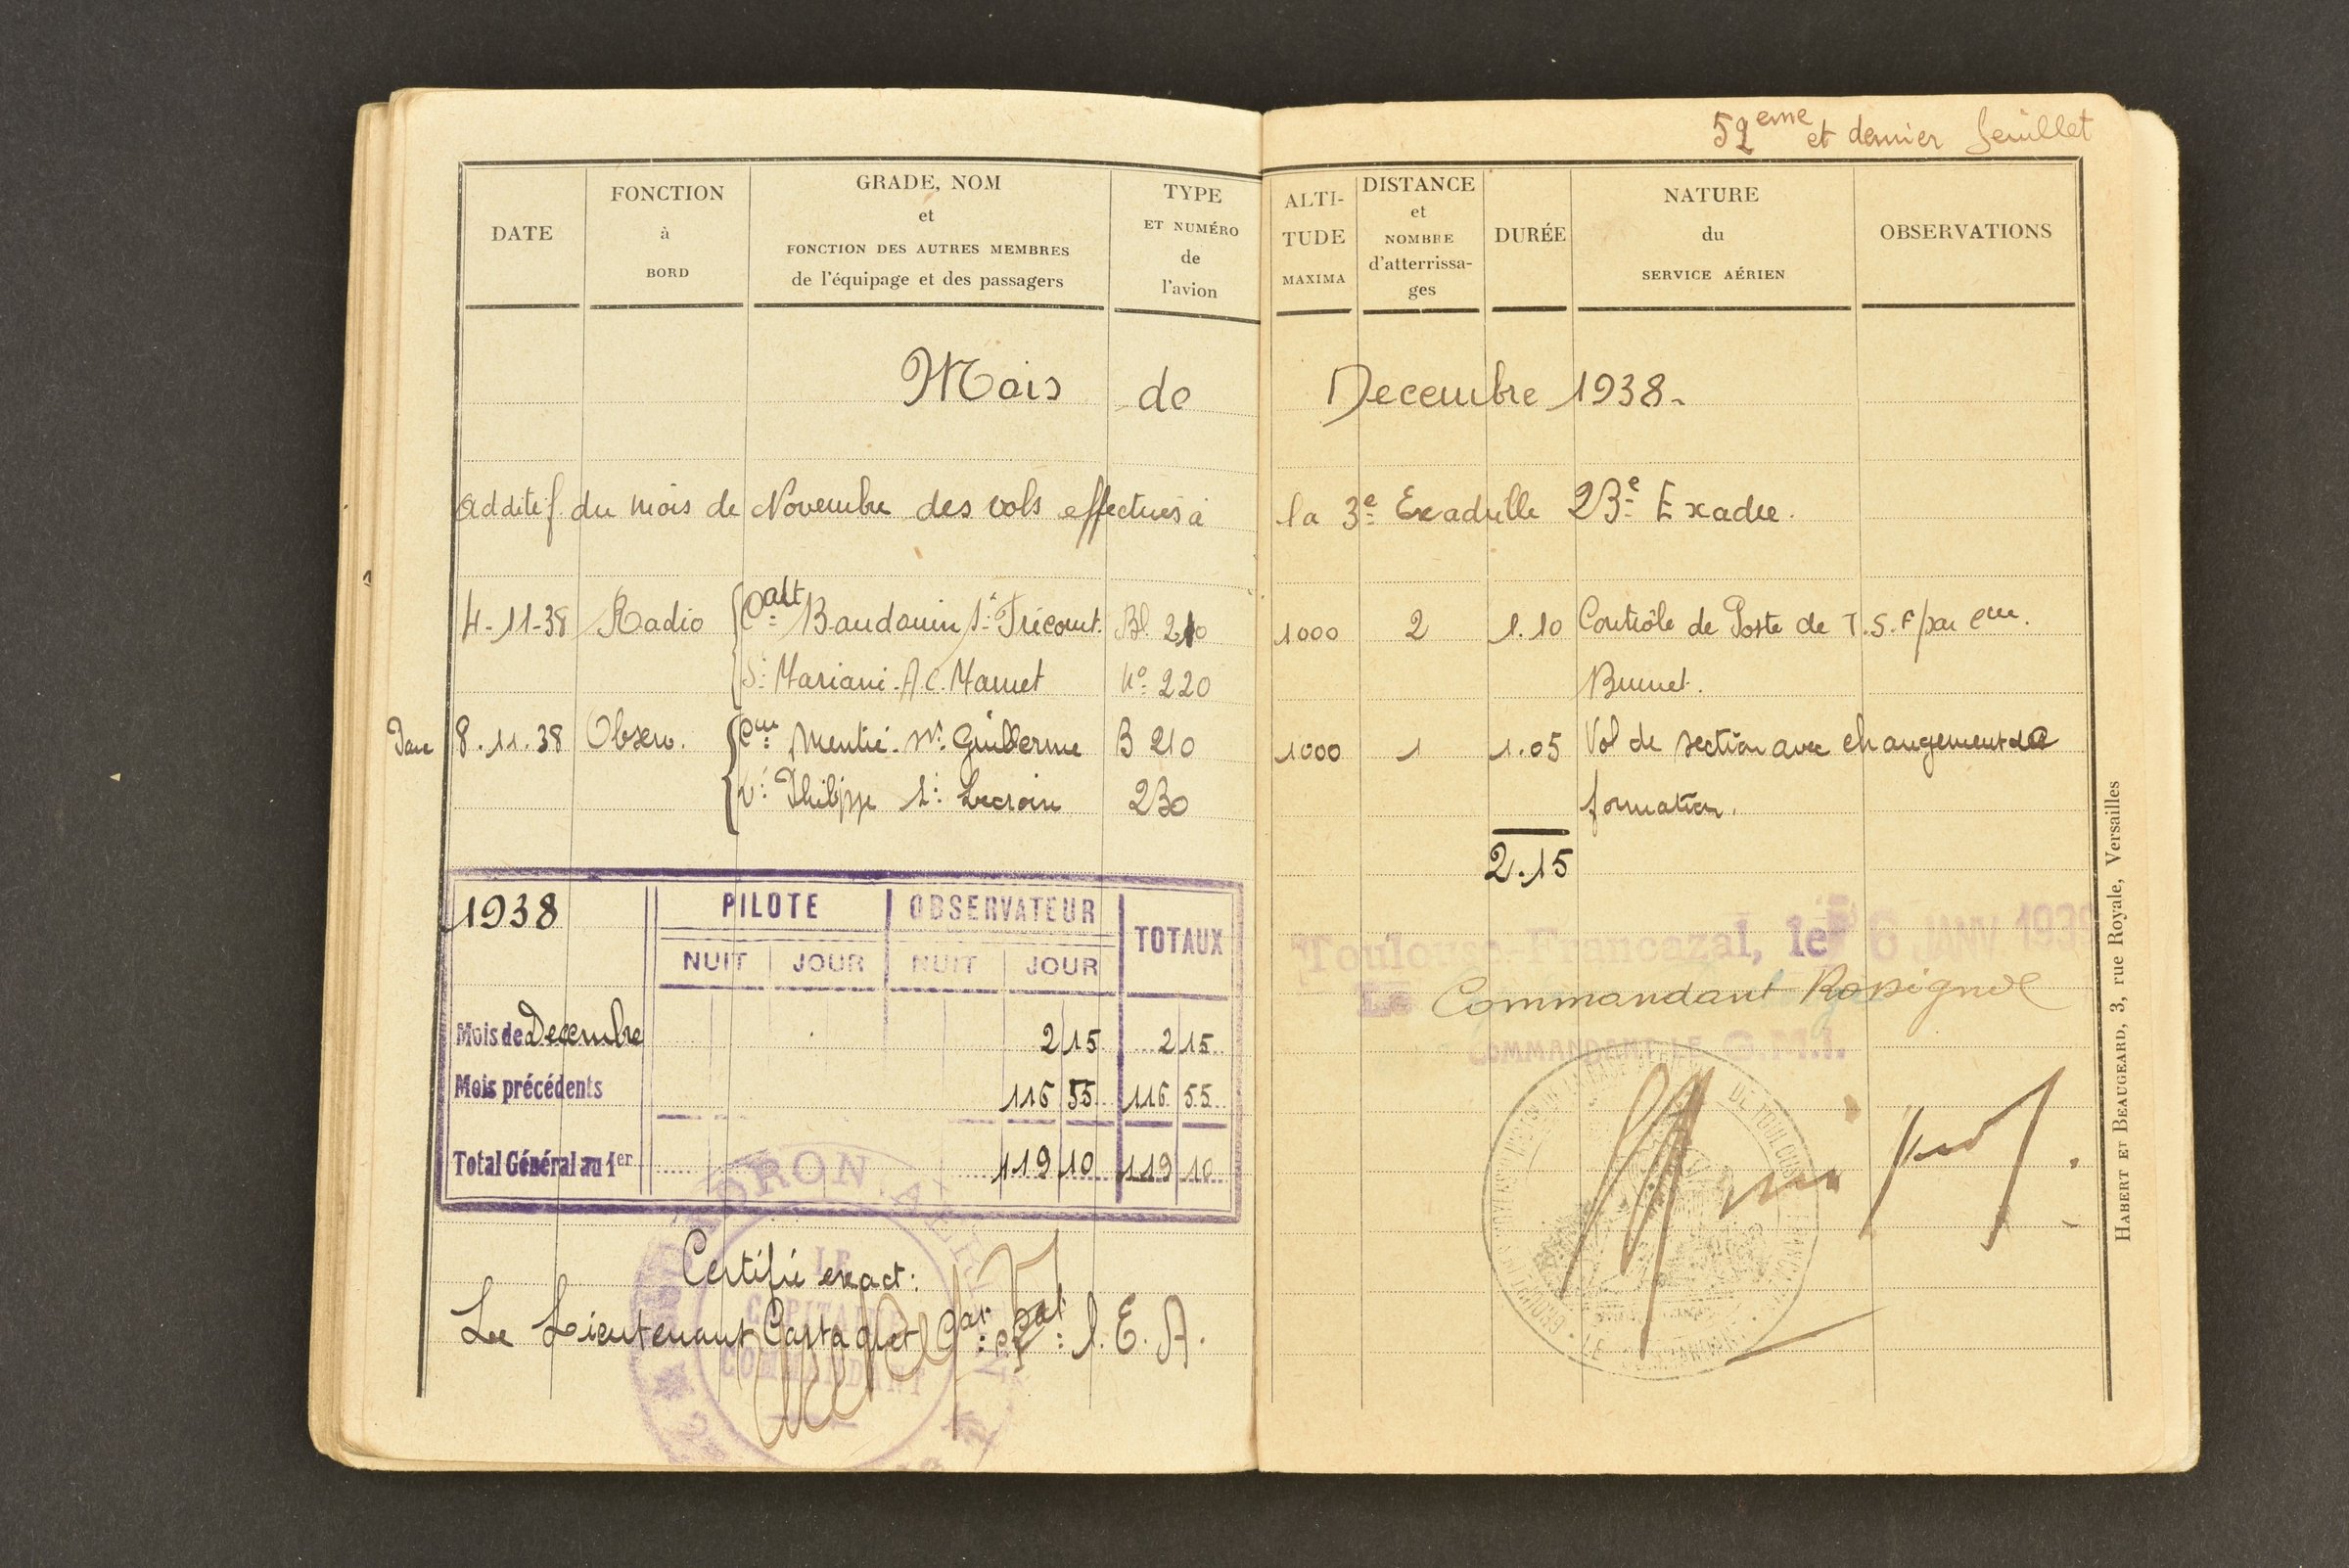 52eme et dernier feuillet
DATE
FONCTION
à
BORD
GRADE, NOM
et
FONCTION DES AUTRES MEMBRES
de l'équipage et des passagers
TYPE
ET NUMÉRO
de
l'avion
ALTI-
TUDE
MAXIMA
DISTANCE
et
NOMBRE
d'atterrissa-
ges
DURÉE
NATURE
du
SERVICE AÉRIEN
OBSERVATIONS
Mois de Decembre 1938.
additif du mois de Novembre des vols effectués à la 3e Escadrille 23e Escadre.
4-11-38 Radio Baudouin Tricourt. Bl. 210 1000 2 1.10 Contrôle de Poste de T.S.F par
Mariani. A C. Mamet No 220 Brunet.
8.11.38 Observ. Mentié. Guillerme B 210 1000 1 1.05 Vol de section avec changement de
Philippe Lecroix 230 formation.
2.15
1938 PILOTE OBSERVATEUR TOTAUX
NUIT JOUR NUIT JOUR
Mois de Decembre 2 15 2 15
Mois précédents 116 55 116 55
Total Général au 1er 119 10 119 10
Toulouse-Francazal, le 6 JANV 1939
Le Commandant Rossignol
COMMANDANT LE G.M.I.
Certifié exact:
Le Lieutenant Castagnet l. E. A.
LE
CAPITAINE
COMMANDANT
HABERT ET BEAUGEARD, 3, rue Royale, Versailles